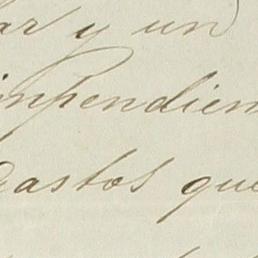 ar y un
impendien
Gastos que